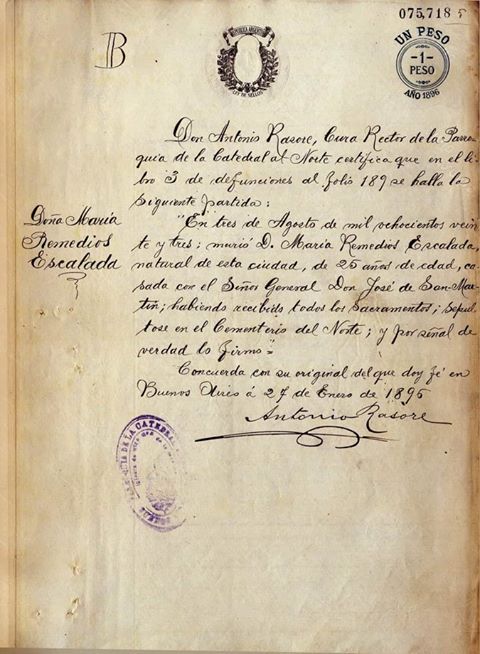 075,718 5
B
REPUBLICA ARGENTINA
LEY DE SELLOS
UN PESO
-1-
PESO
AÑO 1896
Don Antonio Rasore, Cura Rector de la Parro-
quia de la Catedral al Norte certifica que en el li-
bro 3 de defunciones al folio 189 se halla la
siguiente partida:
Doña María
Remedios
Escalada
"En tres de Agosto de mil ochocientos vein-
te y tres; murió D. María Remedios Escalada,
natural de esta ciudad, de 25 años de edad, ca-
sada con el Señor General Don José de San Mar-
tín; habiendo recibido todos los Sacramentos; sepul-
tose en el Cementerio del Norte; y por señal de
verdad lo firmo"=
Concuerda con su original del que doy fé en
Buenos Aires á 27 de Enero de 1896
Antonio Rasore
PARROQUIA DE LA CATEDRAL